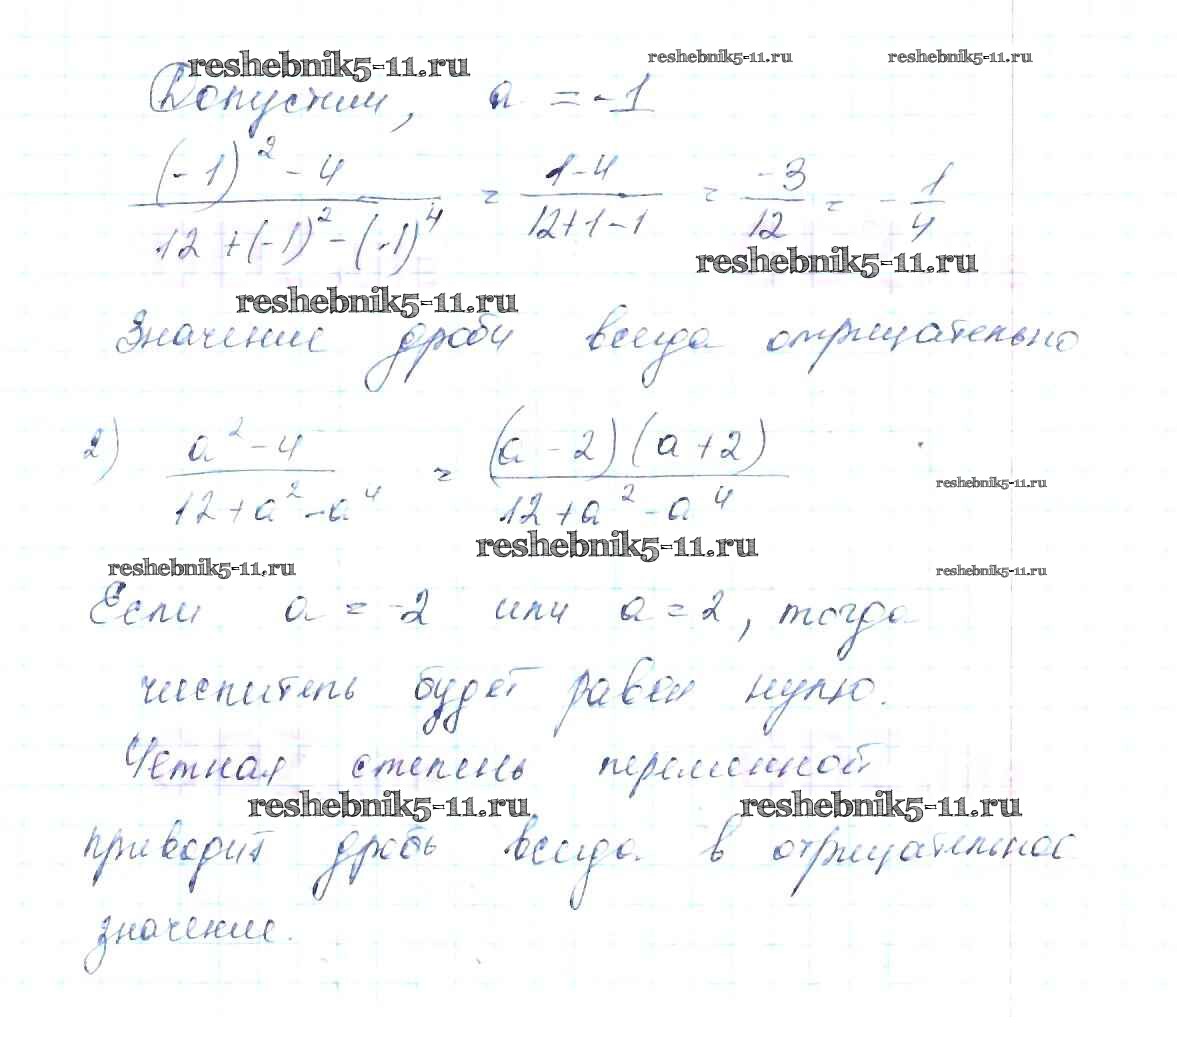 reshebnik5-11.ru reshebnik5-11.ru reshebnik5-11.ru
Допустим, a = -1
((-1)^2 - 4)/(12 + (-1)^2 - (-1)^4) = (1-4)/(12+1-1) = -3/12 = - 1/4
reshebnik5-11.ru
reshebnik5-11.ru
Значение дроби всегда отрицательно
2) (a^2 - 4)/(12 + a^2 - a^4) = ((a - 2)(a + 2))/(12 + a^2 - a^4)
reshebnik5-11.ru
reshebnik5-11.ru
reshebnik5-11.ru reshebnik5-11.ru
Если a = -2 или a = 2, тогда
числитель будет равен нулю.
Четная степень переменной
reshebnik5-11.ru reshebnik5-11.ru
приводит дробь всегда в отрицательное
значение.